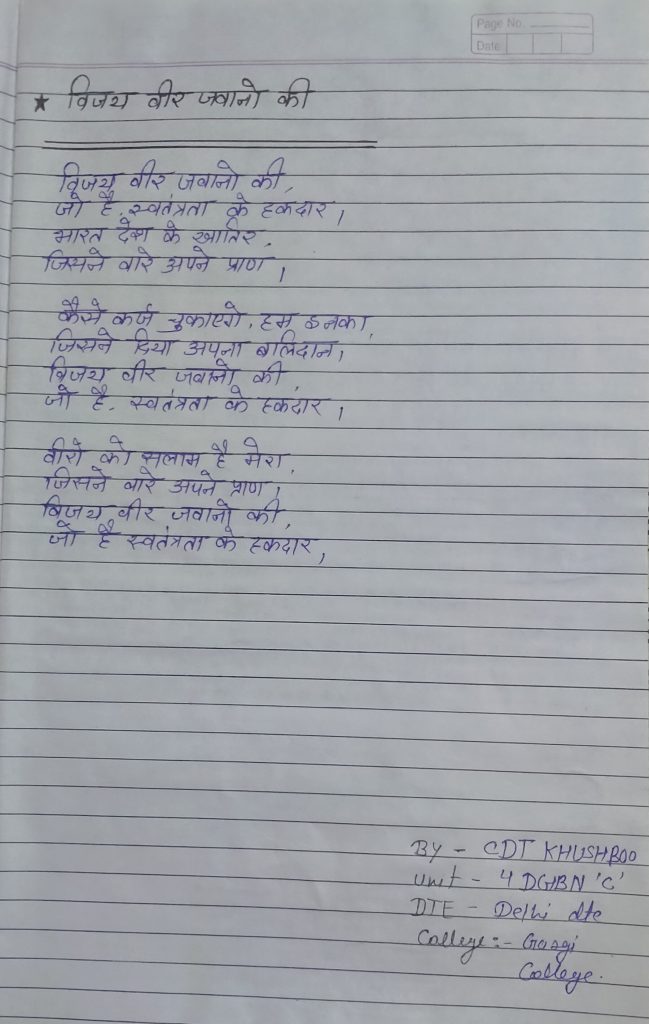 Page No.
Date
★ विजय वीर जवानो की
विजय वीर जवानो की,
जो है, स्वतंत्रता के हकदार,
भारत देश के खातिर,
जिसने वारे अपने प्राण,
कैसे कर्ज चुकाएगे, हम इनका,
जिसने दिया अपना बलिदान,
विजय वीर जवानो की,
जो है, स्वतंत्रता के हकदार,
वीरो को सलाम है मेरा,
जिसने वारे अपने प्राण,
विजय वीर जवानो की,
जो है स्वतंत्रता के हकदार,
BY - CDT KHUSHBOO
Unit - 4 DGBN 'C'
DTE - Delhi dte
College :- Gargi
College.